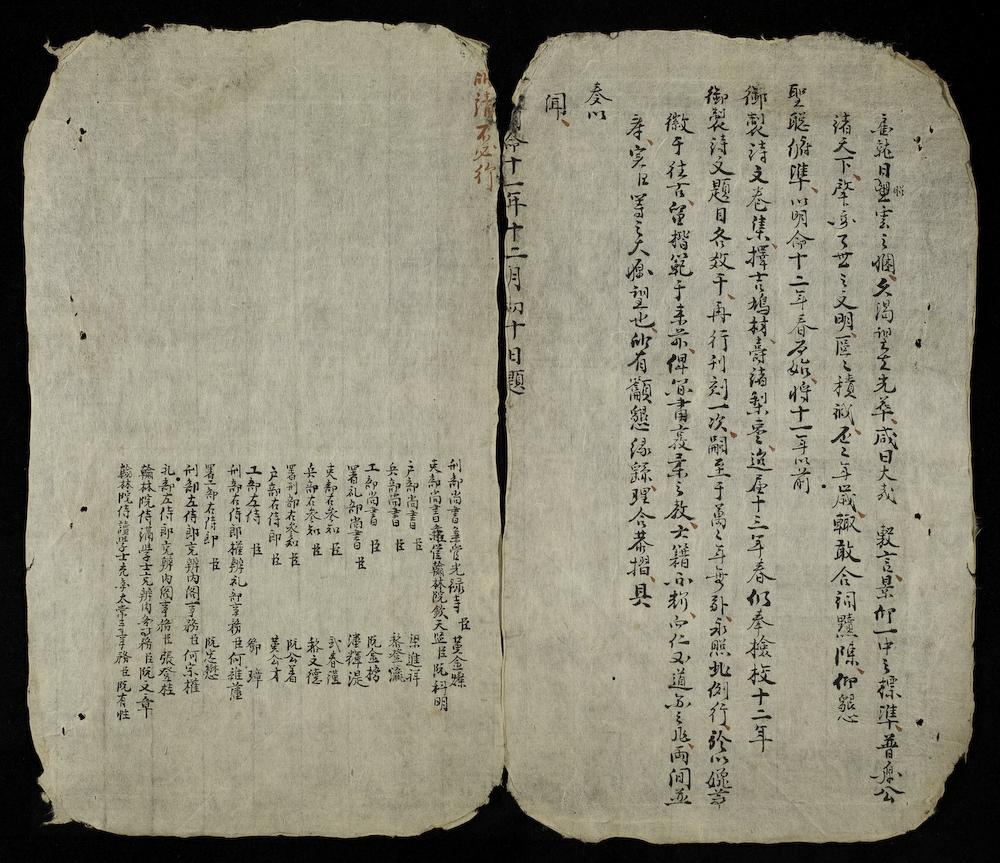 日雲之悃久渴望光華咸日大哉 敷言景仰一中之標準普爲公
諸天下肇萬世之文明區之積誠年輒敢合詞臚陳仰懇
聖聰俯準以明命十二年春爲始將十一年以前
御製詩文卷集擇吉鳩材壽諸梨棗迨至十三年春仍奉檢校十二年
御製詩文題目各于再行刊刻一次嗣至于萬之年永照此例行於以媲芳
徽于往古留楷範于來俾書之教士籍仁又道兩間並
存寔臣等之大願望也所有籲懇緣繇理合恭摺具
奏以
聞
明命十一年十二月初十日題
所請不必行
刑部尚書兼管光祿寺 臣 黃金
吏部尚書兼管翰林院欽天監臣阮科明
户部尚書 臣 梁進祥
兵部尚書 臣 黎登瀛
工部尚書 臣 阮金榜
署礼部尚書 臣 潘輝湜
吏部右參知 臣 武春
兵部右參知 臣 黎文德
署刑部右參知 臣 阮公著
户部右侍郎 臣 黃公才
工部左侍 臣 鄧璋
刑部右侍郎權辦礼部事務臣何維藩
署工部右侍郎 臣 阮忠懋
刑部左侍郎充辦内閣事務臣何宗權
礼部左侍郎充辦内閣事務臣張登桂
翰林院侍講學士充辦内務府事務臣阮文章
翰林院侍讀學士充辦太常寺事務臣阮有性